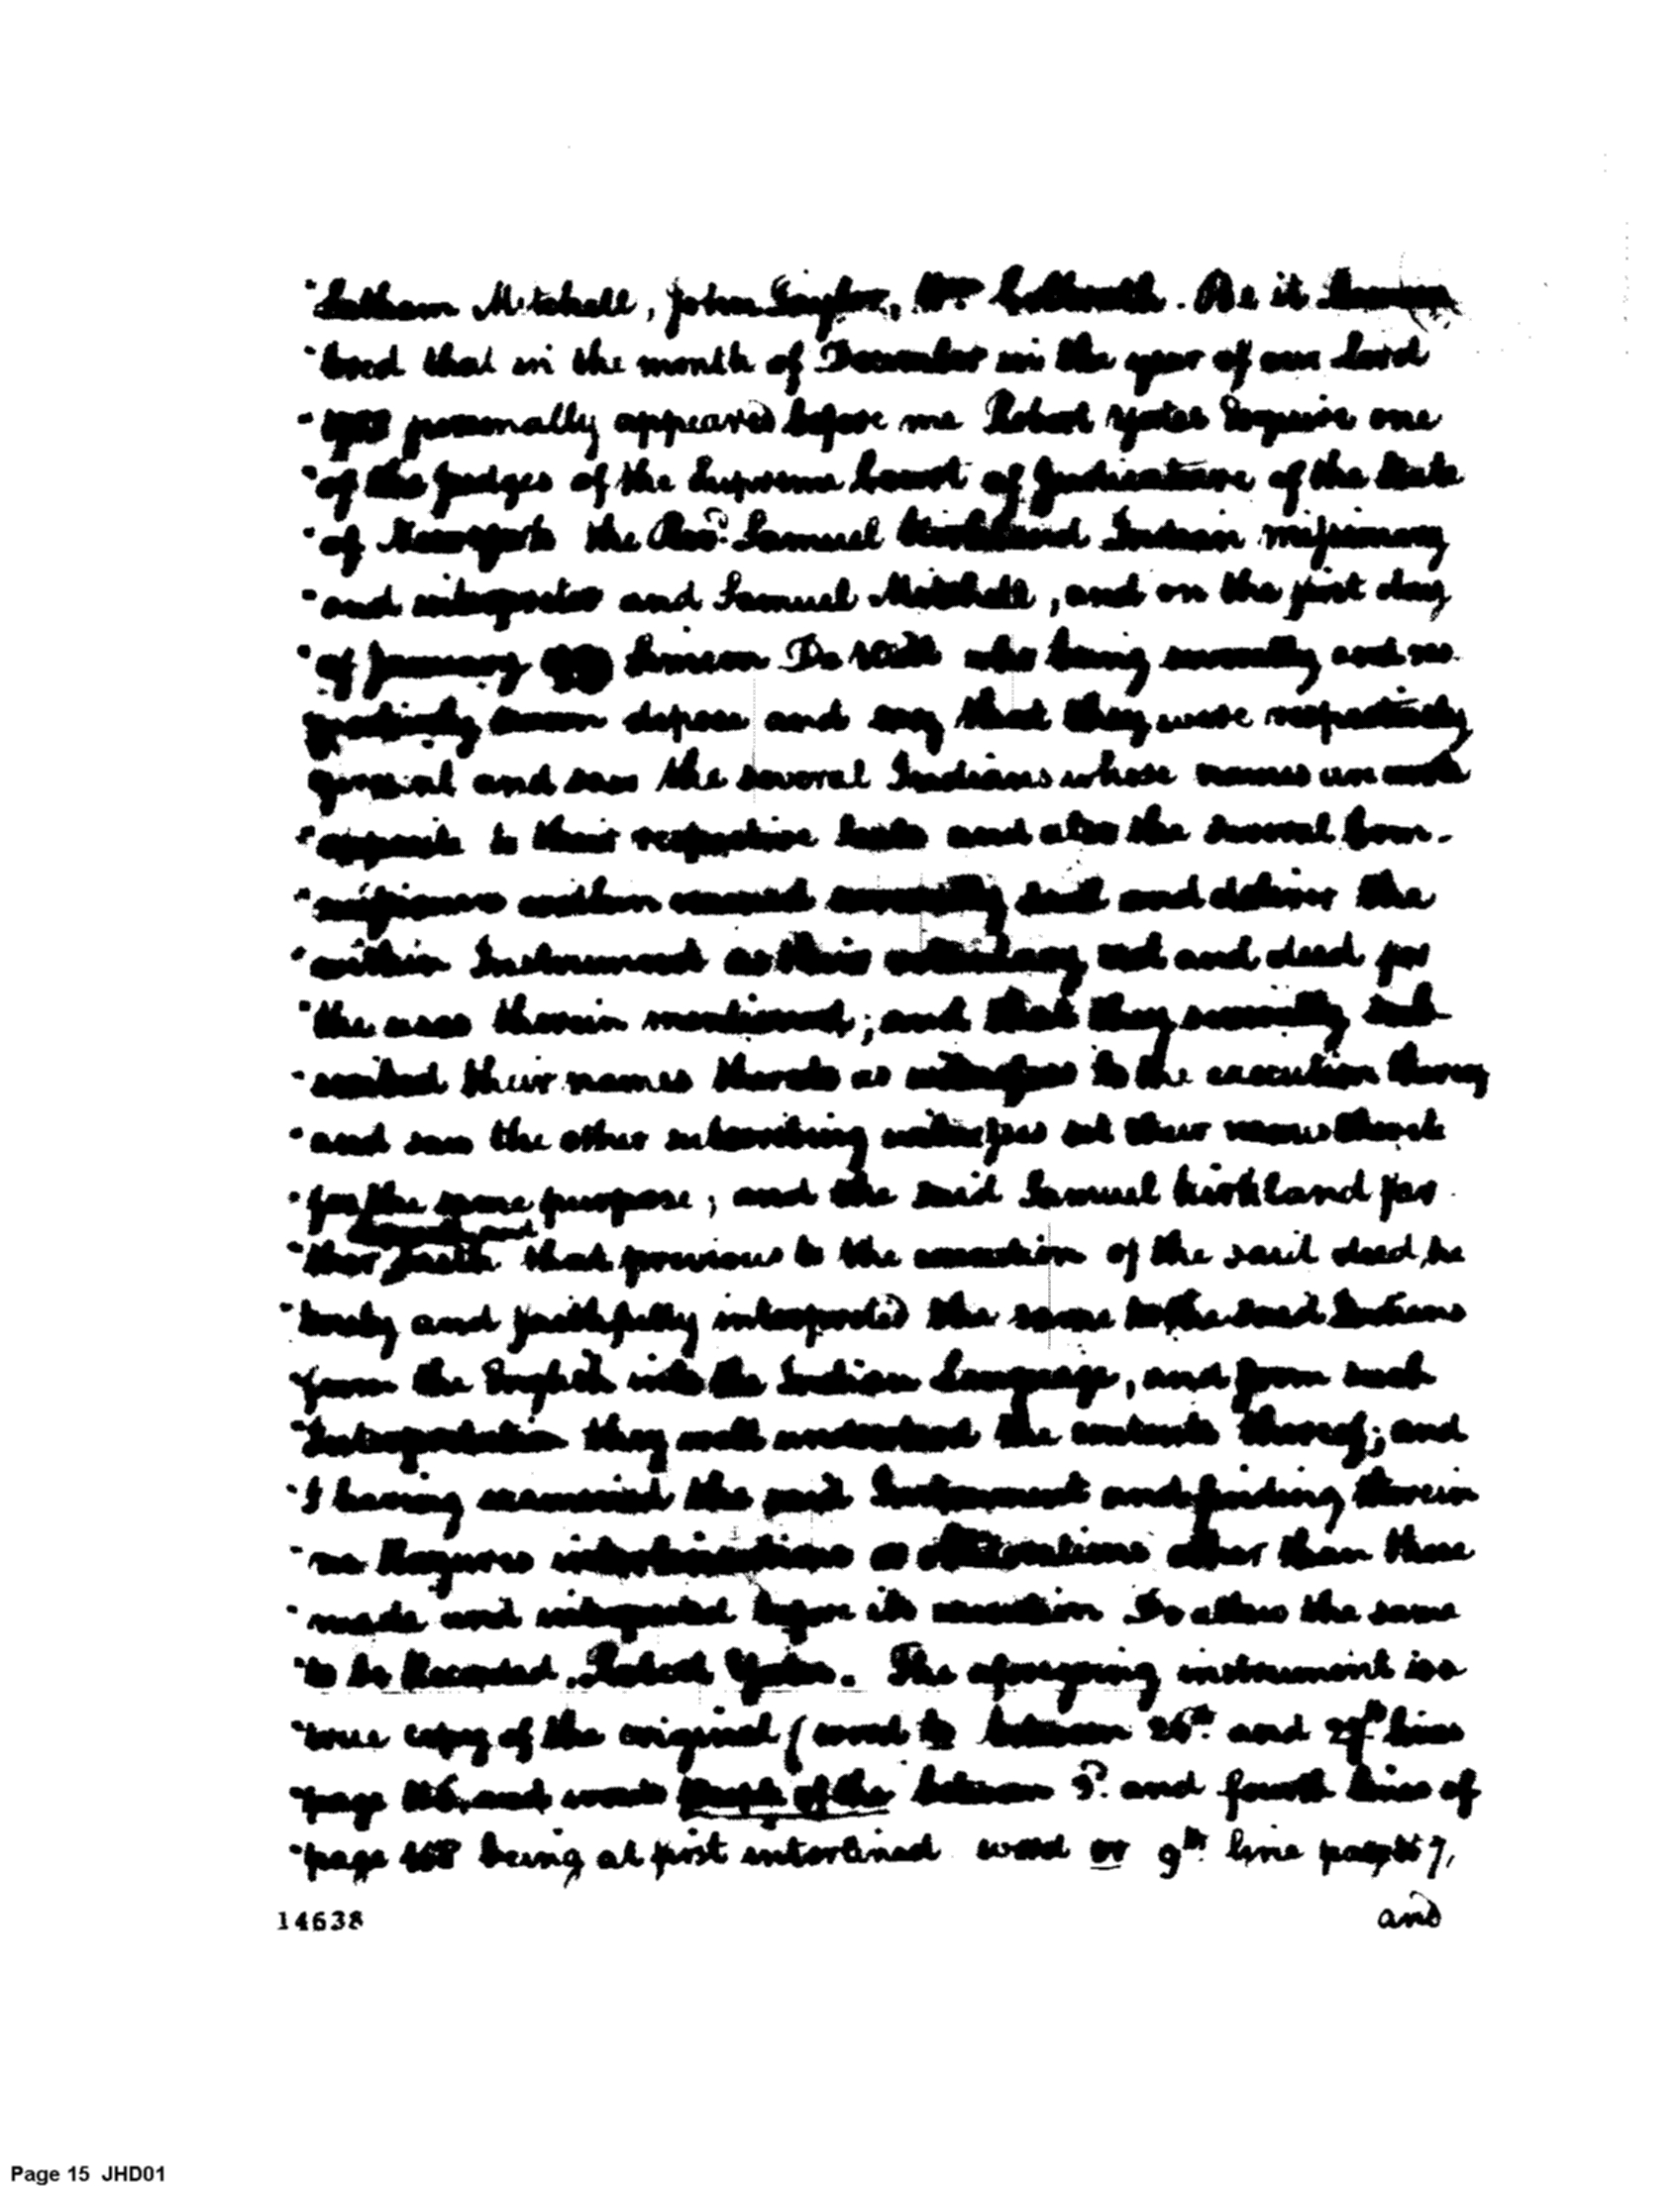 "Latham Mitchell, John Tayler, Wm Colbreath. Be it
" that in the month of December in the year of our Lord
" personally appeared before me Robert Yates Esquire one
"of the Judges of the Supreme Court of Judicature of the State
"of Newyork the Revd. Samuel Kirkland Indian missionary
"and interpreter and Samuel Mitchell, and on the first day
"of January Simeon De Witt who being severally and res
pectively sworn depose and say that they were respectively
present and saw the several Indians whose names are
"opposite to their respective seals and also the several Com-
"missioners within named severally seal and deliver the
"within Instrument as their voluntary act and deed for
"the uses therein mentioned; and that they severally sub
"scribed their names thereto as witnesses to the execution thereof
"and saw the other subscribing witnesses set their names thereto
"for the same purpose; and the said Samuel Kirkland fur
"ther saith that previous to the execution of the said deed he
"truly and faithfully interpreted the same to the said Indians
"from the English into the Indian Language, and from such
"Interpretation they well understood the contents thereof; and
"I having examined the said Instrument and finding therein
"no Razures interlineations or obliterations other than those
"made and interpreted before its execution Do allow the same
"to be Recorded. Robert Yates. The aforegoing instrument is a
"true copy of the original (word to between 26th. and 27th lines
"page and words of the between 3d. and fourth lines of
"page being at first interlined word or 9th. line page
14638
and
Page 15 JHD01